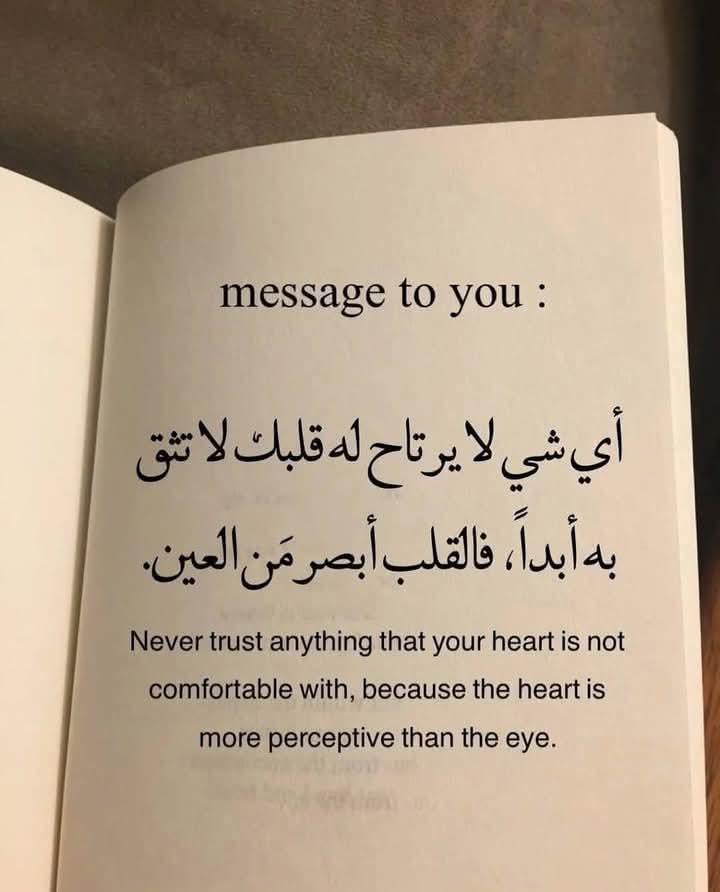 message to you :
أي شي لا يرتاح له قلبك لا تثق
به أبداً، فالقلب أبصر مَن العين.
Never trust anything that your heart is not
comfortable with, because the heart is
more perceptive than the eye.